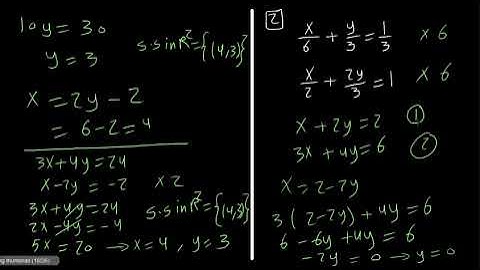 10y = 30
y = 3
S.S in R² = {(4,3)}
x = 2y - 2
= 6 - 2 = 4
3x + 4y = 24
x - 2y = -2 x 2
3x + 4y = 24
2x - 4y = -4
S.S in R² = {(4,3)}
5x = 20 → x = 4 , y = 3
2
x/6 + y/3 = 1/3 x 6
x/2 + 2y/3 = 1 x 6
x + 2y = 2 ①
3x + 4y = 6 ②
x = 2 - 2y
3(2 - 2y) + 4y = 6
6 - 6y + 4y = 6
-2y = 0 → y = 0